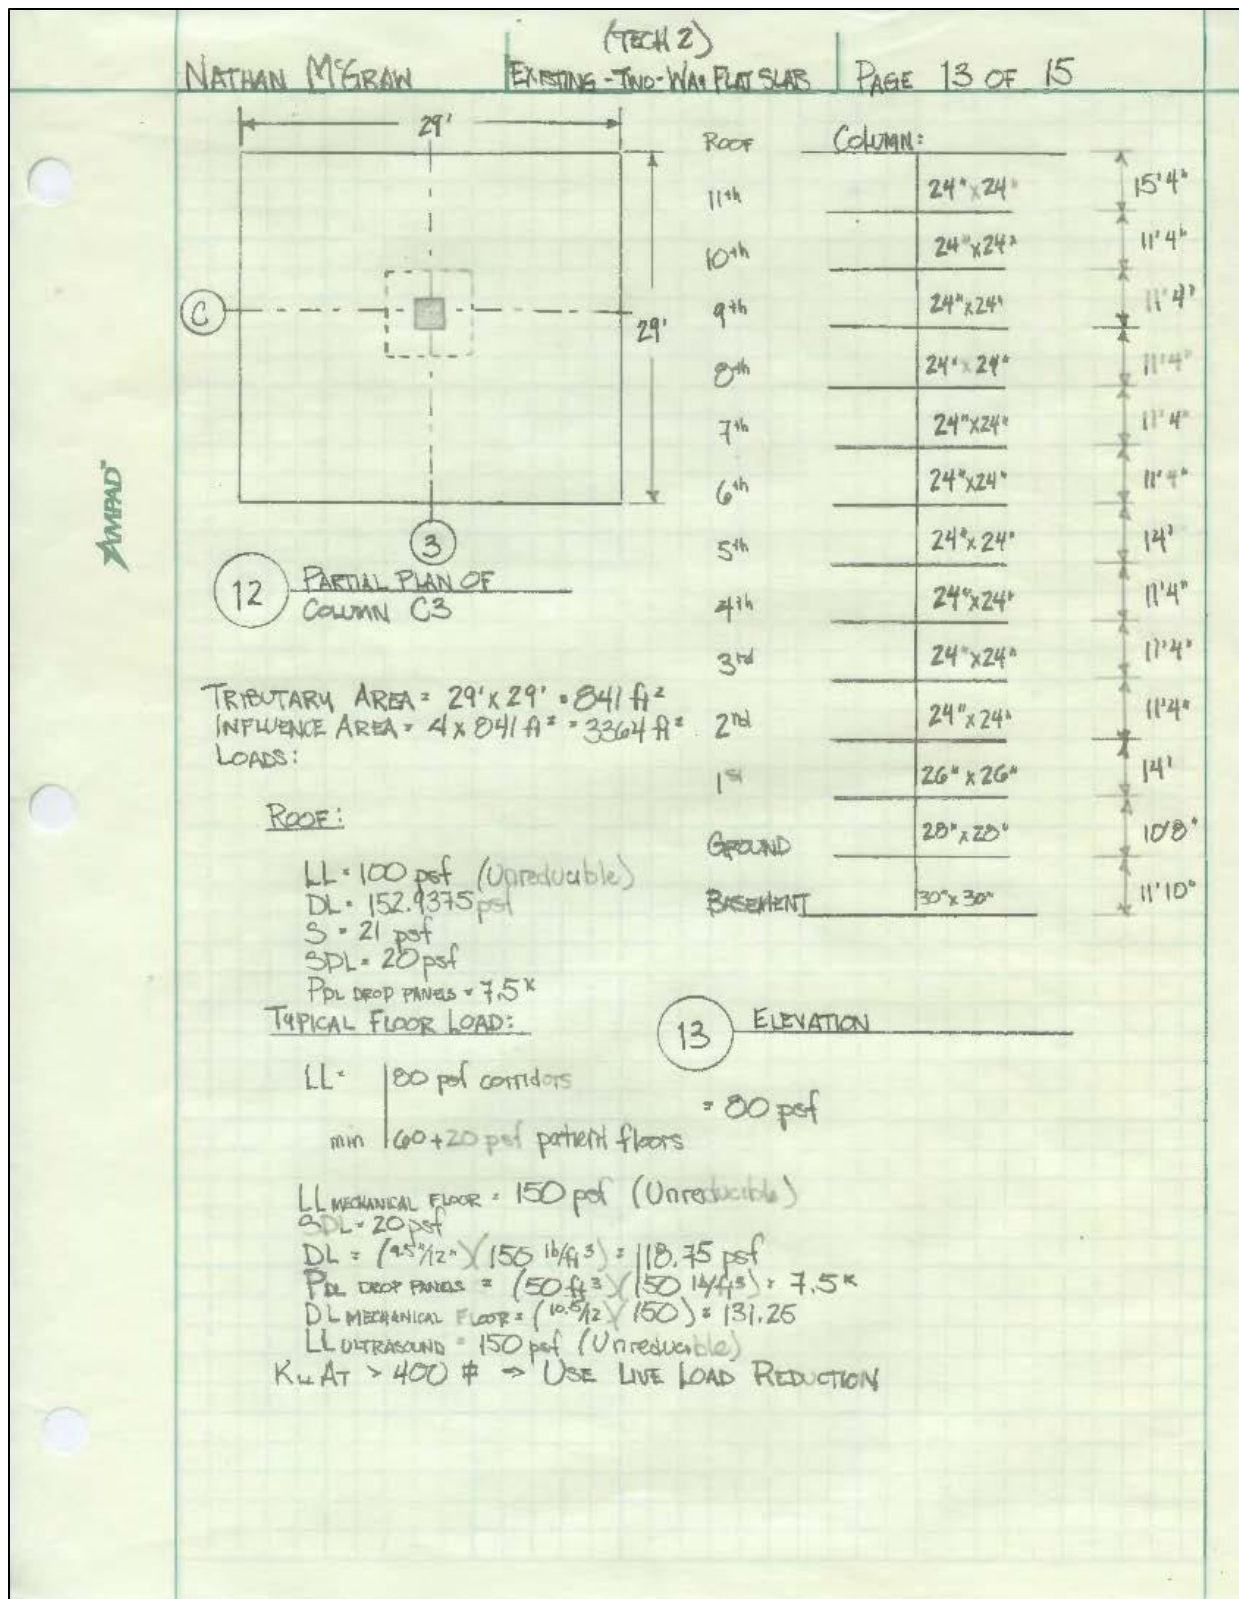 (TECH 2)
NATHAN McGRAW EXISTING-TWO-WAY FLAT SLAB PAGE 13 OF 15
29'
29'
C
3
12 PARTIAL PLAN OF
COLUMN C3
COLUMN:
ROOF
11th 24" x 24" 15'4"
10th 24" x 24" 11'4"
9th 24" x 24" 11'4"
8th 24" x 24" 11'4"
7th 24" x 24" 11'4"
6th 24" x 24" 11'4"
5th 24" x 24" 14'
4th 24" x 24" 11'4"
3rd 24" x 24" 11'4"
2nd 24" x 24" 11'4"
1st 26" x 26" 14'
GROUND 28" x 28" 10'8"
BASEMENT 30" x 30" 11'10"
13 ELEVATION
TRIBUTARY AREA = 29' x 29' = 841 ft²
INFLUENCE AREA = 4 x 841 ft² = 3364 ft²
LOADS:
ROOF:
LL = 100 psf (Unreducible)
DL = 152.9375 psf
S = 21 psf
SDL = 20 psf
PDL DROP PANELS = 7.5K
TYPICAL FLOOR LOAD:
LL = 80 psf corridors
min 60+20 psf patient floors = 80 psf
LL MECHANICAL FLOOR = 150 psf (Unreducible)
SDL = 20 psf
DL = (9.5"/12")(150 lb/ft³) = 118.75 psf
PDL DROP PANELS = (50 ft³)(150 lb/ft³) = 7.5K
DL MECHANICAL FLOOR = (10.5/12)(150) = 131.25
LL ULTRASOUND = 150 psf (Unreducible)
KLL AT > 400 ⌗ → USE LIVE LOAD REDUCTION
AMPAD™